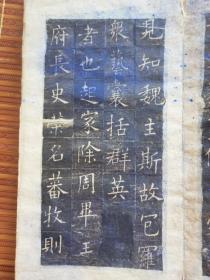 見知魏主斯故包羅
衆藝囊括群英
者也起家除周畢王
府長史榮名蕃牧則